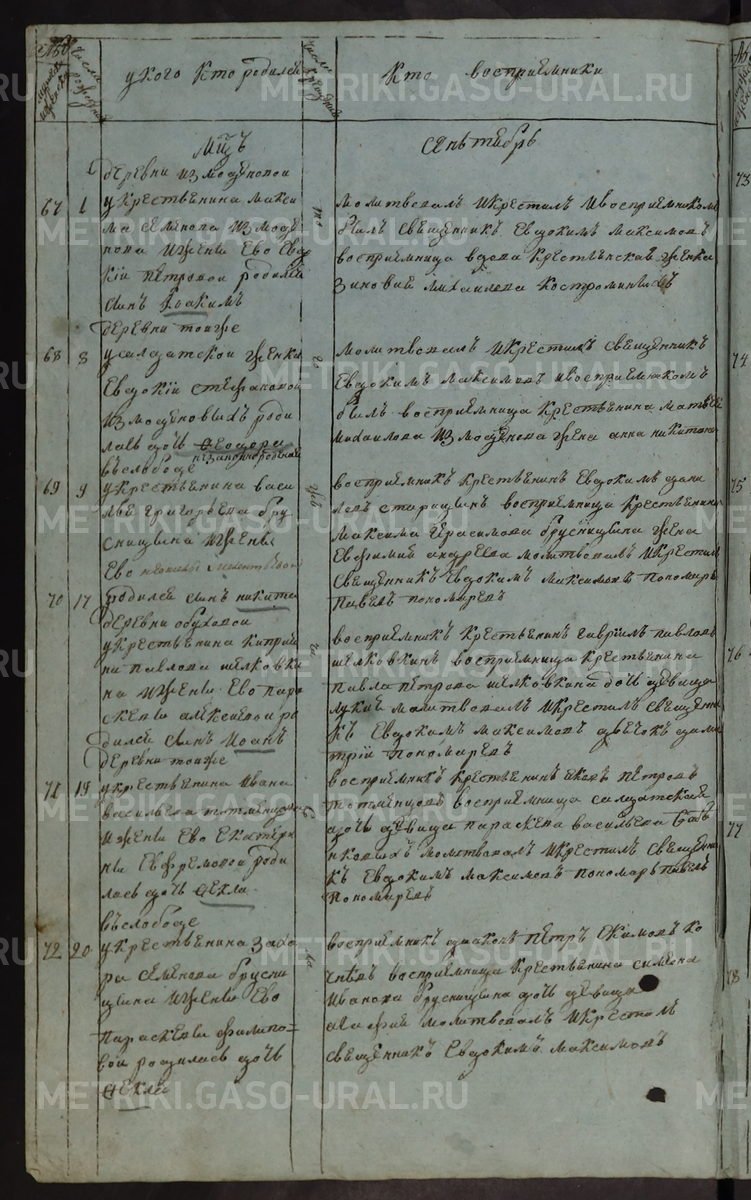 у кого кто родился
кто восприемники
мцъ
сентябрь
деревни измоденовой
67 1 укрестьянина макси
ма семенова измоде
нова ижены ево евдо
кіи петровой родился
сынъ Іоакимъ
молитвовалъ икрестилъ ивосприемникомъ
былъ священникъ Евдокимъ максимовъ
восприемница вдова крестьянская женка
зиновия михаилова костромитинъ
деревни тоижъ
68 8 усалдатской женки
Евдокіи стефановой
измоденовыхъ роди
лась дочь Ѳеодора
незаконнорожденная
молитвовалъ икрестилъ священникъ
Евдокимъ максимовъ ивосприемникомъ
былъ восприемница крестьянина матвея
михаилова измоденова жена анна никитина
въслободе
69 9 укрестьянина васи
лья григорьева бру
сницына ижены
Ево
родился сынъ никита
восприемникъ крестьянинъ Евдокимъ дани
ловъ старицынъ восприемница крестьянина
максима герасимова брусницына жена
Евфимия андреева молитвовалъ икрестилъ
священникъ Евдокимъ максимовъ пономарь
павелъ пономаревъ
70 17
деревни обуховой
укрестьянина киприя
на павлова шелковки
на ижены Ево пара
скевы алексеевой ро
дился сынъ Иоанъ
восприемникъ крестьянинъ гавріилъ павловъ
шелковкинъ восприемница крестьянина
павла петрова шелковкина дочь девица
молитвовалъ икрестилъ священни
къ Евдокимъ максимовъ дьячокъ дими
трій пономаревъ
деревни тоижъ
71 19 укрестьянина ивана
васильева
ижены Ево Екатери
ны Ефремовой роди
лась дочь Ѳекла
восприемникъ крестьянинъ яковъ петровъ
восприемница салдатская
дочь девица параскева васильева
молитвовалъ икрестилъ священни
къ Евдокимъ максимовъ пономарь павелъ
пономаревъ
въслободе
72 20 укрестьянина заха
ра семенова брусни
цына ижены Ево
параскевы филипо
вой родилась дочь
Ѳекла
восприемникъ диаконъ петръ Екимовъ ко
чневъ восприемница крестьянина симеона
иванова брусницына дочь девица
агафия молитвовалъ икрестилъ
священникъ Евдокимъ максимовъ
73
74
75
76
77
78
METRIKI.GASO-URAL.RU